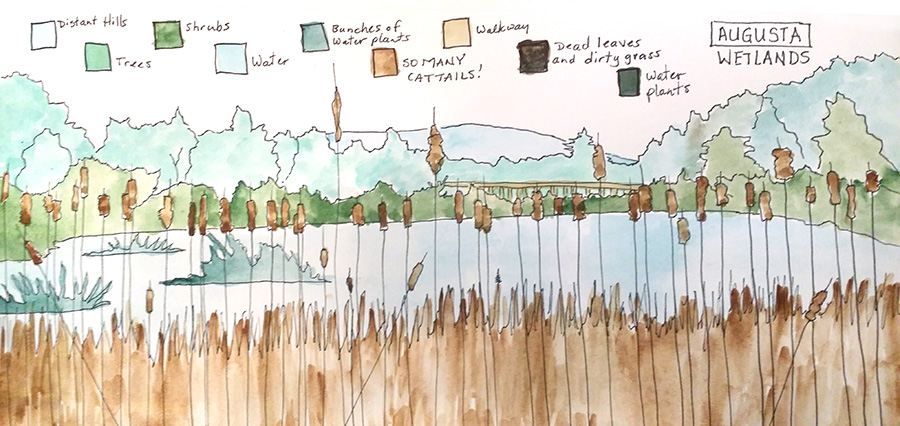 Distant Hills
Trees
Shrubs
Water
Bunches of
water plants
SO MANY
CATTAILS!
Walkway
Dead leaves
and dirty grass
Water
plants
AUGUSTA
WETLANDS